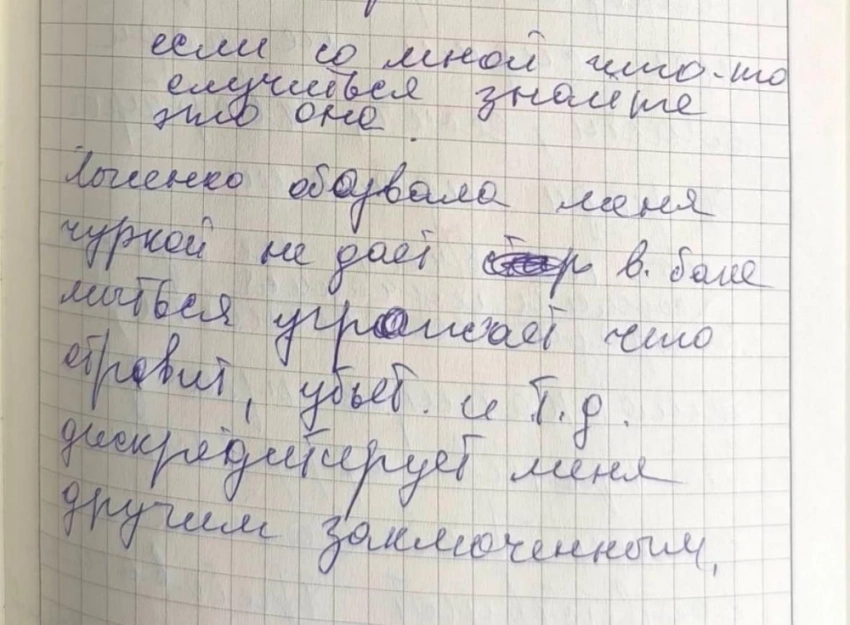 если со мной что-то
случиться знайте
это она.
обозвала меня
чуркой не дает в. бане
мыться угрожает что
отровит, убьет. и т.д.
дискредитирует меня
другим заключенным,